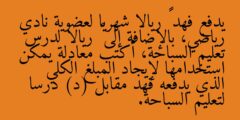 يدفع فهد ً ريالا شهريا لعضوية نادي
رياضي، بالإضافة إلى ً ريالا لدرس
تعليم السباحة، أكتب معادلة يمكن
استخدامها لإيجاد المبلغ الكلي
الذي يدفعه فهد مقابل (د) درسا
لتعليم السباحة.